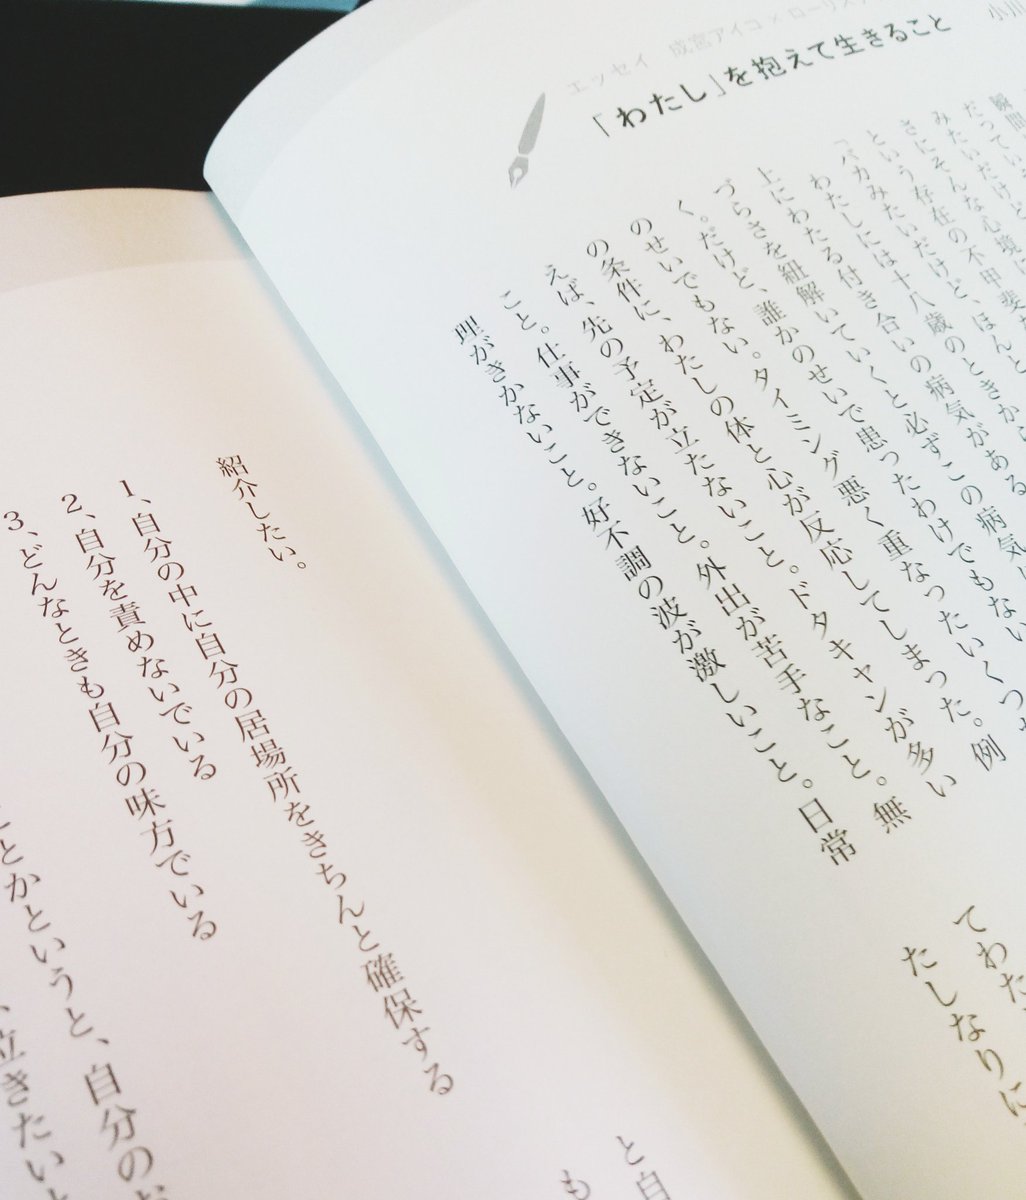 エッセイ　成宮アイコ × ローリスク
小川
「わたし」を抱えて生きること
瞬間
だってい
みたいだけど
さにそんな心境に
という存在の不甲斐
「バカみたいだけど、ほんと
わたしには十八歳のときから
上にわたる付き合いの病気がある
づらさを紐解いていくと必ずこの病気に
く。だけど、誰かのせいで患ったわけでもない
のせいでもない。タイミング悪く重なったいくつか
の条件に、わたしの体と心が反応してしまった。例
えば、先の予定が立たないこと。ドタキャンが多い
こと。仕事ができないこと。外出が苦手なこと。無
理がきかないこと。好不調の波が激しいこと。日常
てわた
たしなりに
と自
も
紹介したい。
1、自分の中に自分の居場所をきちんと確保する
2、自分を責めないでいる
3、どんなときも自分の味方でいる
とかというと、自分のお
、泣きたいと